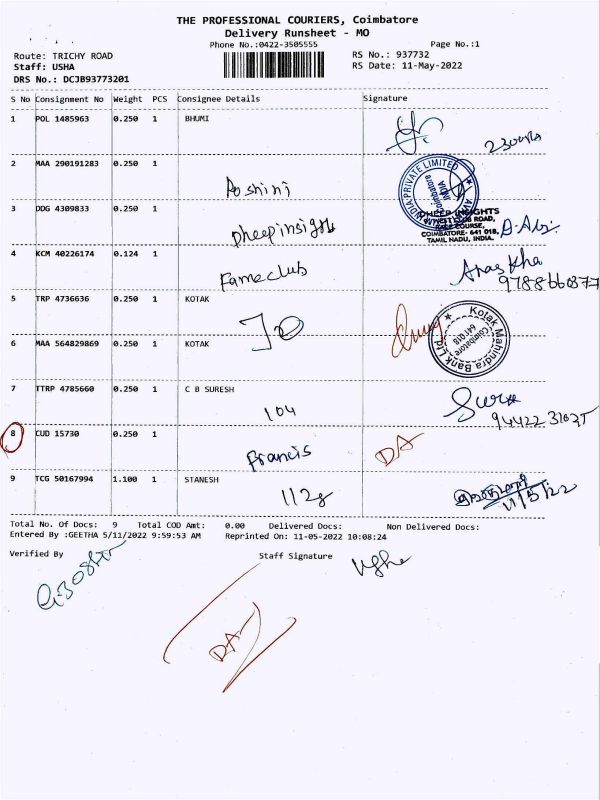 THE PROFESSIONAL COURIERS, Coimbatore
Delivery Runsheet - MO
Phone No.:0422-3505555 Page No.:1
Route: TRICHY ROAD RS No.: 937732
Staff: USHA RS Date: 11-May-2022
DRS No.: DCJB93773201
S No Consignment No Weight PCS Consignee Details Signature
1 POL 1485963 0.250 1 BHUMI
2 MAA 290191283 0.250 1
Aoshini
INDIA PRIVATE LIMITED
Coimbatore
INDIA
3 DDG 4309833 0.250 1
Dheepinsights
DHEEP INSIGHTS
COURSE,
COIMBATORE- 641 018,
TAMIL NADU, INDIA.
4 KCM 40226174 0.124 1
Fameclub
9788660377
5 TRP 4736636 0.250 1 KOTAK
Kotak Mahindra Bank Ltd
Coimbatore
641 018
6 MAA 564829869 0.250 1 KOTAK
7 TTRP 4785660 0.250 1 C B SURESH
104
8 CUD 15730 0.250 1
Francis DA
9 TCG 50167994 1.100 1 STANESH
1128
11/5/22
Total No. Of Docs: 9 Total COD Amt: 0.00 Delivered Docs: Non Delivered Docs:
Entered By :GEETHA 5/11/2022 9:59:53 AM Reprinted On: 11-05-2022 10:08:24
Verified By Staff Signature
DA